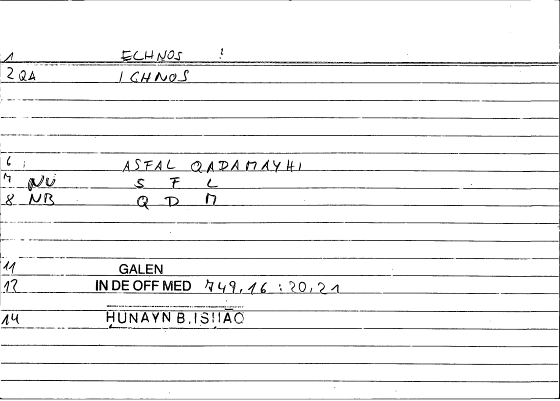 1 ECHNOS !
2 QA ICHNOS
6 : ASFAL QADAMAYHI
7 NU S F L
8 NB Q D M
11 GALEN
12 IN DE OFF MED 749,16 : 20,21
14 ḤUNAYN B.ISḤĀQ